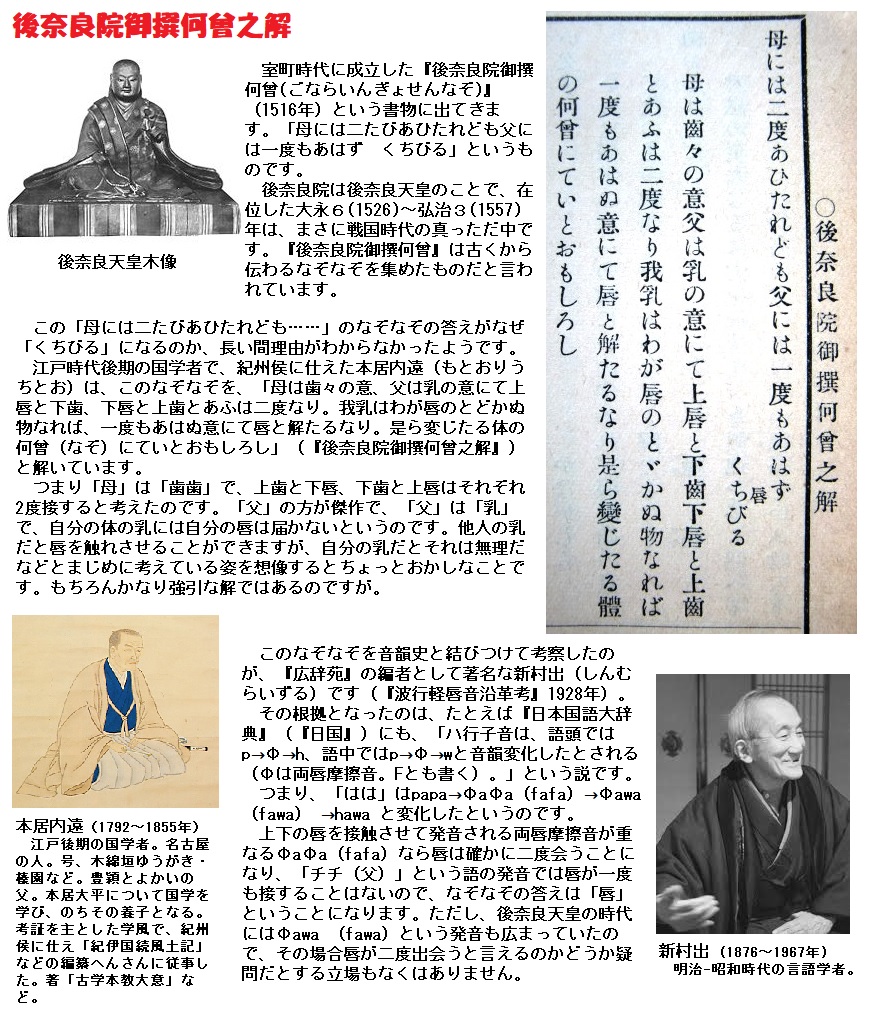 後奈良院御撰何曾之解
　室町時代に成立した『後奈良院御撰
何曾(ごならいんぎょせんなぞ)』
（1516年）という書物に出てきま
す。「母には二たびあひたれども父に
は一度もあはず　くちびる」というも
のです。
　後奈良院は後奈良天皇のことで、在
位した大永６(1526)～弘治３(1557)
年は、まさに戦国時代の真っただ中で
す。『後奈良院御撰何曾』は古くから
伝わるなぞなぞを集めたものだと言わ
れています。
後奈良天皇木像
○後奈良院御撰何曾之解
母には二度あひたれども父には一度もあはず
くちびる
唇
母は齒々の意父は乳の意にて上唇と下齒下唇と上齒
とあふは二度なり我乳はわが唇のとゞかぬ物なれば
一度もあはぬ意にて唇と解たるなり是ら變じたる體
の何曾にていとおもしろし
　この「母には二たびあひたれども……」のなぞなぞの答えがなぜ
「くちびる」になるのか、長い間理由がわからなかったようです。
　江戸時代後期の国学者で、紀州侯に仕えた本居内遠（もとおりう
ちとお）は、このなぞなぞを、「母は歯々の意、父は乳の意にて上
唇と下歯、下唇と上歯とあふは二度なり。我乳はわが唇のとどかぬ
物なれば、一度もあはぬ意にて唇と解たるなり。是ら変じたる体の
何曾（なぞ）にていとおもしろし」（『後奈良院御撰何曾之解』）
と解いています。
　つまり「母」は「歯歯」で、上歯と下唇、下歯と上唇はそれぞれ
2度接すると考えたのです。「父」の方が傑作で、「父」は「乳」
で、自分の体の乳には自分の唇は届かないというのです。他人の乳
だと唇を触れさせることができますが、自分の乳だとそれは無理だ
などとまじめに考えている姿を想像するとちょっとおかしなことで
す。もちろんかなり強引な解ではあるのですが。
本居内遠（1792～1855年）
　江戸後期の国学者。名古屋
の人。号、木綿垣ゆうがき・
榛園など。豊穎とよかいの
父。本居大平について国学を
学び、のちその養子となる。
考証を主とした学風で、紀州
侯に仕え「紀伊国続風土記」
などの編纂へんさんに従事し
た。著「古学本教大意」な
ど。
　このなぞなぞを音韻史と結びつけて考察したの
が、『広辞苑』の編者として著名な新村出（しんむ
らいずる）です（『波行軽唇音沿革考』1928年）。
　その根拠となったのは、たとえば『日本国語大辞
典』（『日国』）にも、「ハ行子音は、語頭では
p→Φ→h、語中ではp→Φ→wと音韻変化したとされる
（Φは両唇摩擦音。Fとも書く）。」という説です。
　つまり、「はは」はpapa→ΦaΦa（fafa）→Φawa
（fawa）　→hawa と変化したというのです。
　上下の唇を接触させて発音される両唇摩擦音が重
なるΦaΦa（fafa）なら唇は確かに二度会うことに
なり、「チチ（父）」という語の発音では唇が一度
も接することはないので、なぞなぞの答えは「唇」
ということになります。ただし、後奈良天皇の時代
にはΦawa　（fawa）という発音も広まっていたの
で、その場合唇が二度出会うと言えるのかどうか疑
問だとする立場もなくはありません。
新村出（1876～1967年）
　明治-昭和時代の言語学者。